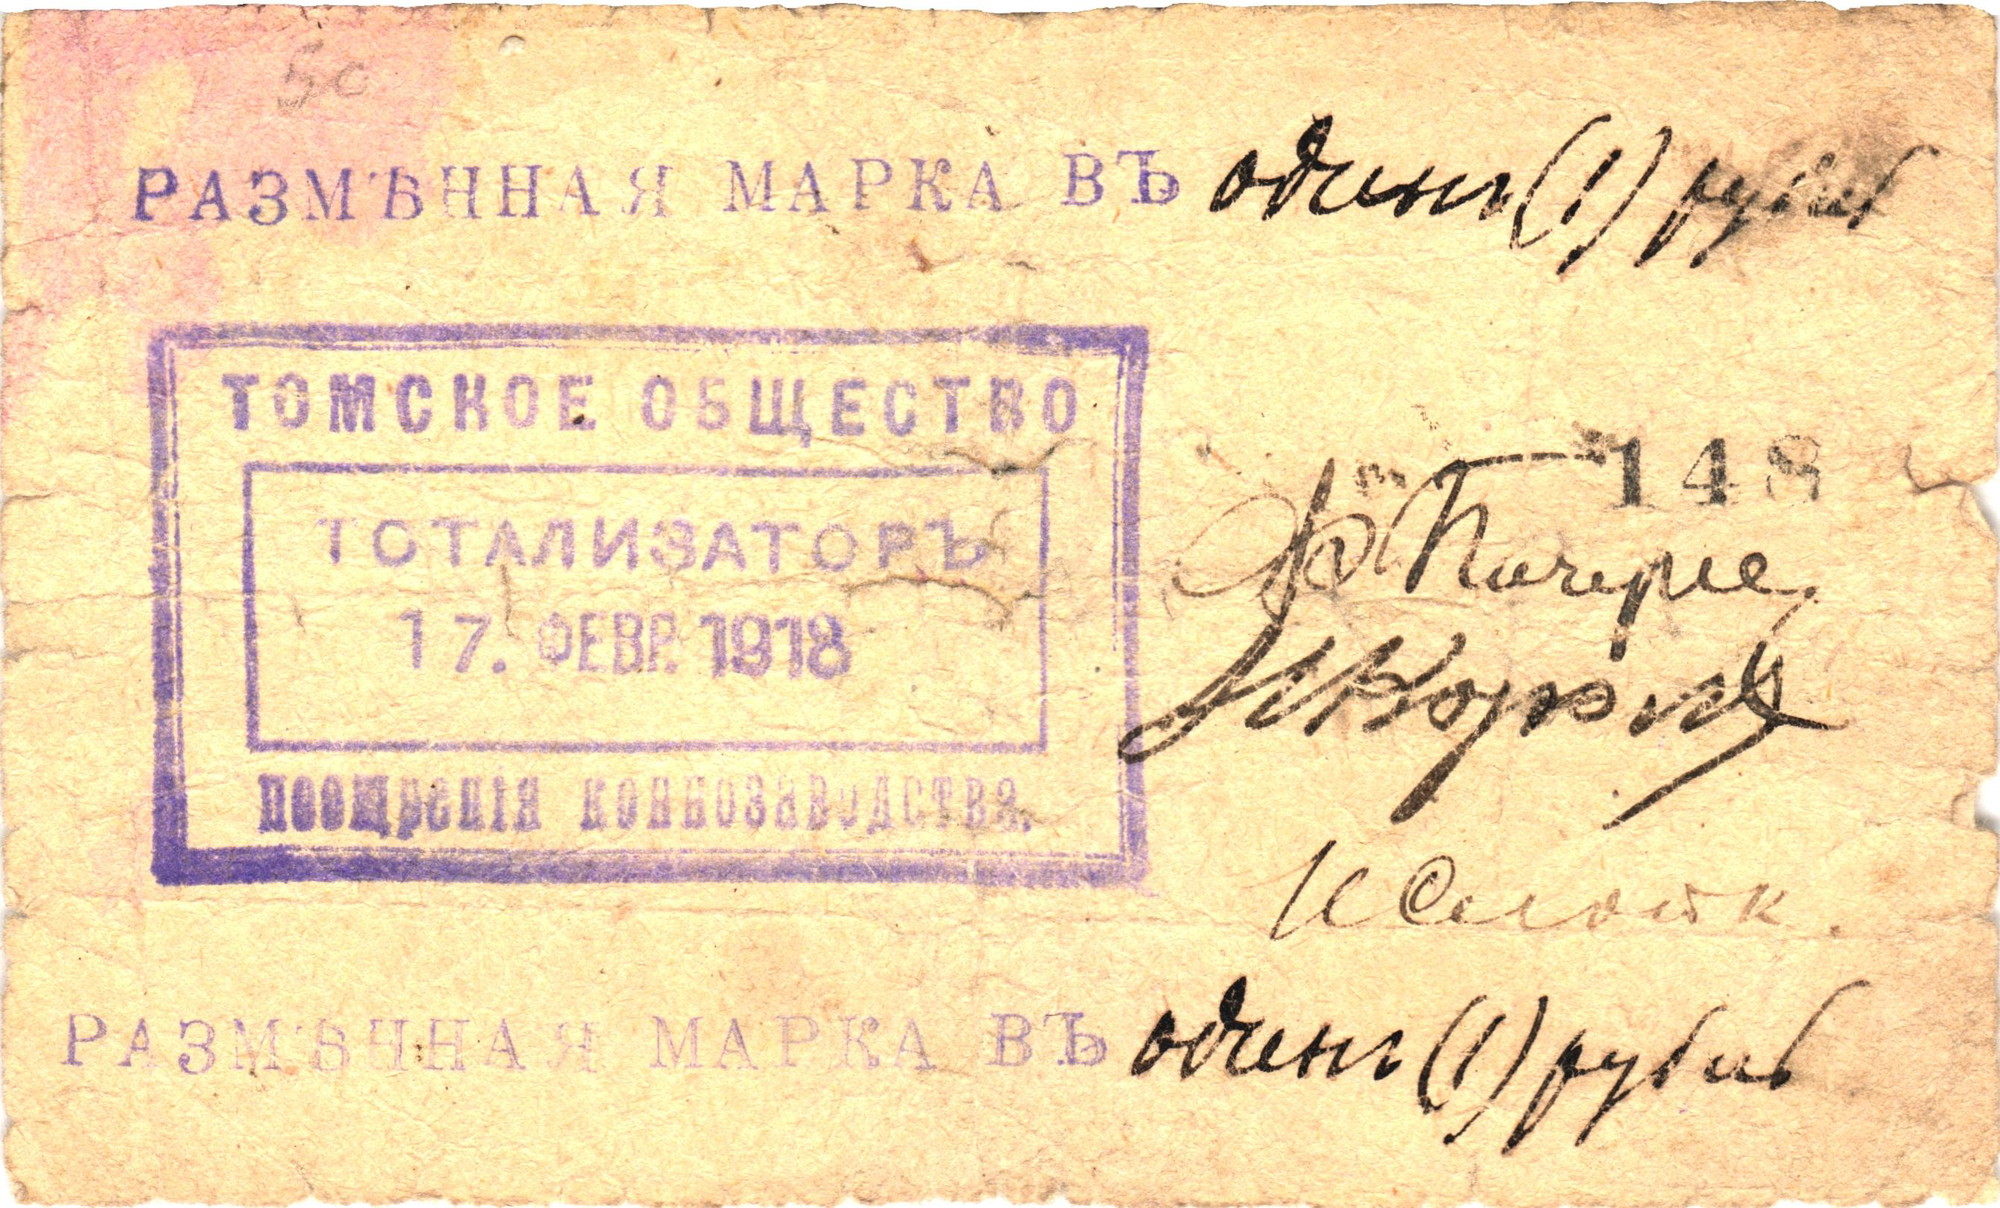 50
РАЗМѢННАЯ МАРКА ВЪ одинъ (1) рубль
ТОМСКОЕ ОБЩЕСТВО
ТОТАЛИЗАТОРЪ
17. ФЕВР. 1918
поощренія коннозаводства.
148
РАЗМѢННАЯ МАРКА ВЪ одинъ (1) рубль